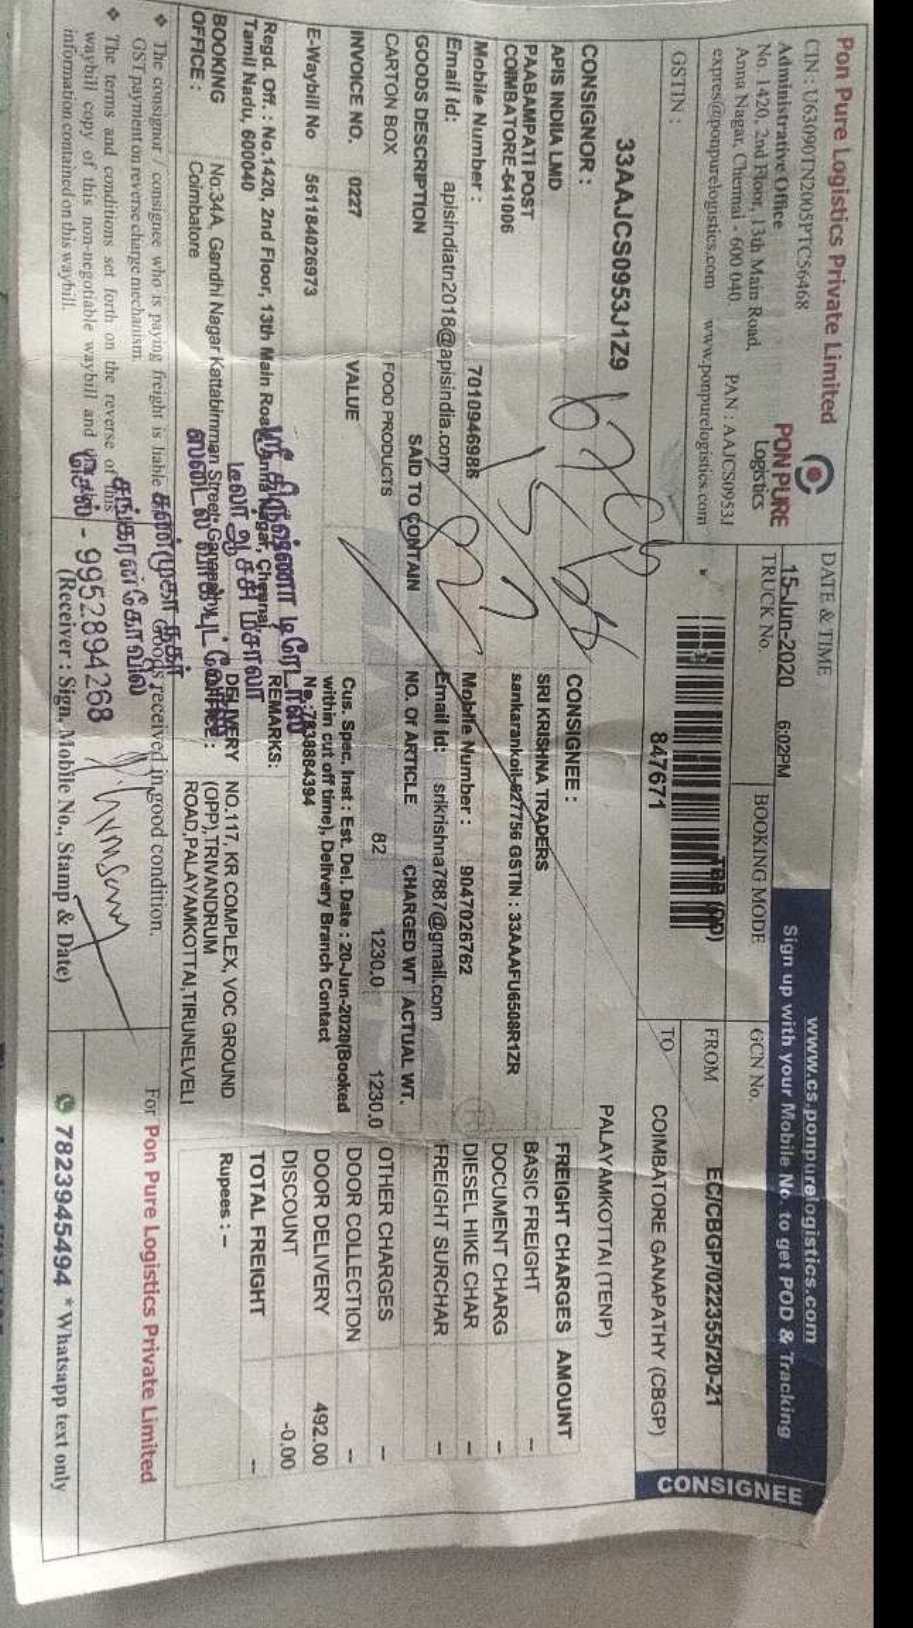 Pon Pure Logistics Private Limited
CIN : U63090TN2005PTC56468
Administrative Office
No. 1420, 2nd Floor, 13th Main Road,
Anna Nagar, Chennai - 600 040. PAN : AAJCS0953J
expres@ponpurelogistics.com www.ponpurelogistics.com
PON PURE
Logistics
GSTIN :
33AAJCS0953J1Z9
DATE & TIME
15-Jun-2020 6:02PM
TRUCK No.
BOOKING MODE
TBB (DD)
847671
www.cs.ponpurelogistics.com
Sign up with your Mobile No. to get POD & Tracking
CONSIGNEE
GCN No.
EC/CBGP/022355/20-21
FROM
COIMBATORE GANAPATHY (CBGP)
TO
PALAYAMKOTTAI (TENP)
CONSIGNOR :
APIS INDIIA LMD
PAABAMPATI POST
COIMBATORE-641006
Mobile Number : 7010946988
Email Id: apisindiatn2018@apisindia.com
CONSIGNEE :
SRI KRISHNA TRADERS
sankarankoil-627756 GSTIN : 33AAAFU6508R1ZR
Mobile Number : 9047026762
Email Id: srikrishna7887@gmail.com
GOODS DESCRIPTION SAID TO CONTAIN NO. Of ARTICLE CHARGED WT ACTUAL WT.
CARTON BOX FOOD PRODUCTS 82 1230.0 1230.0
INVOICE NO. 0227 VALUE
E-Waybill No 561184026973
Cus. Spec. Inst : Est. Del. Date : 20-Jun-2020(Booked
within cut off time), Delivery Branch Contact
No.:7838884394
REMARKS:
FREIGHT CHARGES AMOUNT
BASIC FREIGHT --
DOCUMENT CHARG --
DIESEL HIKE CHAR --
FREIGHT SURCHAR --
OTHER CHARGES --
DOOR COLLECTION --
DOOR DELIVERY 492.00
DISCOUNT -0.00
TOTAL FREIGHT --
Rupees : --
Regd. Off. : No.1420, 2nd Floor, 13th Main Road, Anna Nagar, Chennai,
Tamil Nadu, 600040
BOOKING OFFICE : No:34A, Gandhi Nagar Kattabimman Street, Ganapathy,
Coimbatore
DELIVERY OFFICE : NO.117, KR COMPLEX, VOC GROUND
(OPP),TRIVANDRUM
ROAD,PALAYAMKOTTAI,TIRUNELVELI
ஸ்ரீ கிருஷ்ணா டிரேடர்ஸ்
டீலர் ஆச்சி மசாலா
சண்முகா நகர்
சங்கரன்கோவில்
செல் - 9952894268
❖ The consignor / consignee who is paying freight is liable
GST payment on reverse charge mechanism.
❖ The terms and conditions set forth on the reverse of this
waybill copy of this non-negotiable waybill and
information contained on this waybill.
Goods received in good condition.
(Receiver : Sign, Mobile No., Stamp & Date)
For Pon Pure Logistics Private Limited
7823945494 *Whatsapp text only